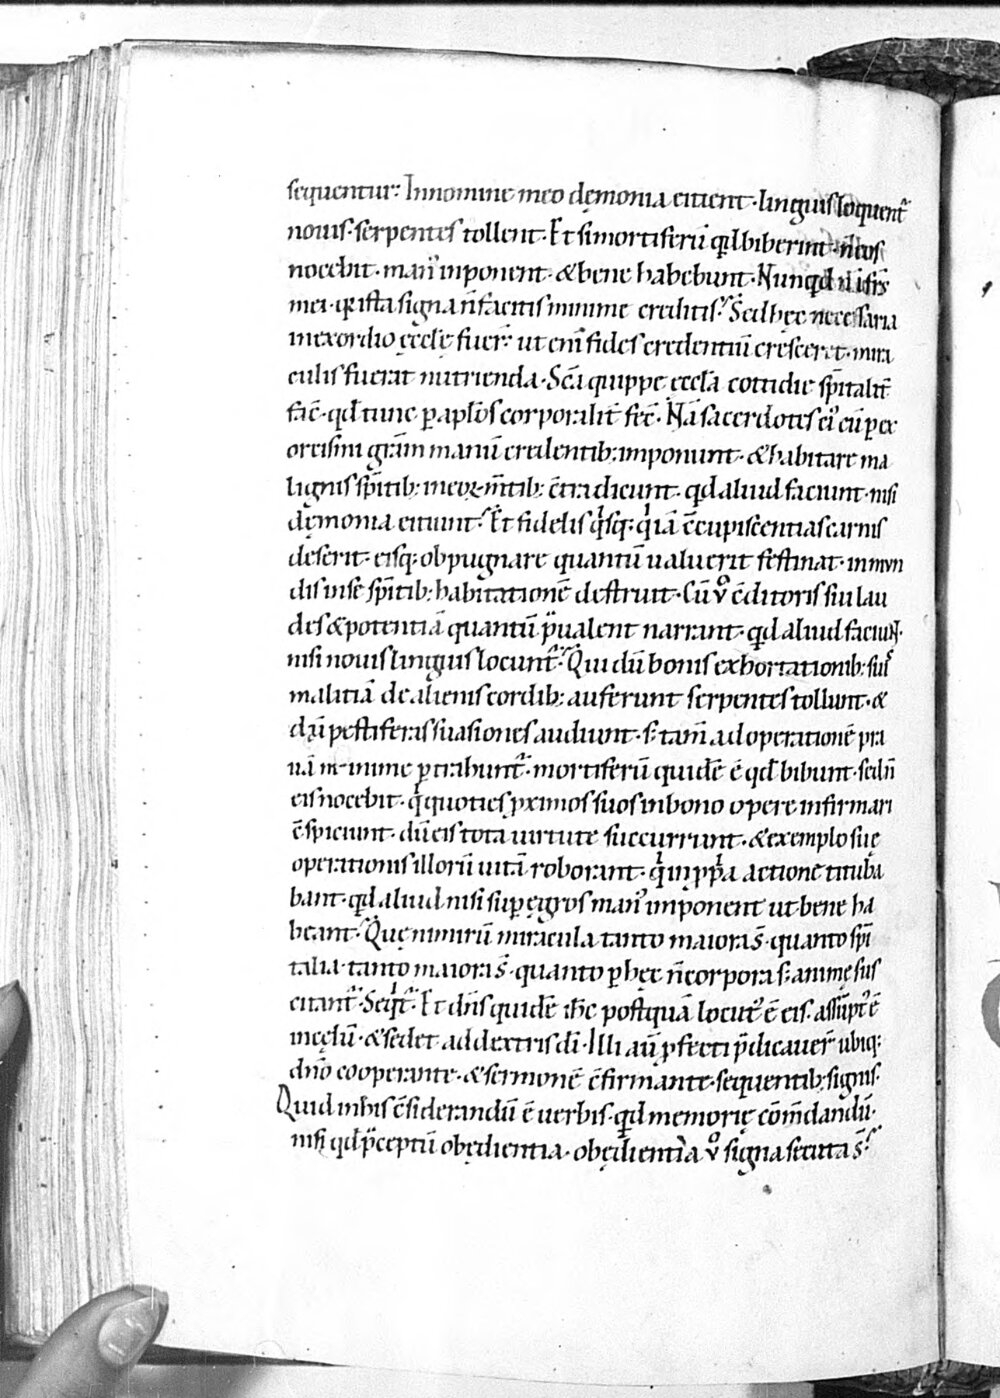 sequentur: In nomine meo dęmonia eitient· linguis loquent᷑
nouis· serpentes tollent· Et si mortiferū qd̄ biberint· n̄ eos
nocebit· man᷒ inponent· & bene habebunt· Nunqd n̄ i frs̄
mei· q̇ ista signa n̄ facitis minime creditis· Sed hęc necessaria
in exordio ęcclę fuer᷑· ut eni᷒ fides credentiū cresceret· mira
culis fuerat nutrienda· Sc̄a quippe ęccla cottidie sp̄italit᷑
fac̄· qd̄ tunc ꝑ aplo̅s corporalit᷑ fec̄· Nā sacerdotes ei᷒ cū ꝑ ex
orcismi gr̄am manū credentib; imponunt· & habitare ma
lignis sp̄itib; in eoꝝ m̄tib; c̄tradicunt· qd aliud faciunt· nisi
dęmonia eitiunt· Et fideles q̇sq; q̇ iā c̄cupiscentias carnis
deserit· eisq; obpugnare quantū ualuerit festinat· in mun
dis in se sp̄itib; habitationē destruit· Cū v̊ c̄ditoris sui lau
des & potentiā quantū p̄ualent narrant· qd aliud faciuɴ·
nisi nouis linguis locunt᷑· Qui dū bonis exhortationib; suis
malitiā de alienis cordib; auferunt serpentes tollunt· &
dū pestiferas suasiones audiunt· s; tam̄ ad operationē pra
uā minime ꝑtrahunt᷑· mortiferū quidē ē qd̄ bibunt· sed n̄
eis nocebit· q̇ quoties ꝓximos suos in bono opere infirmari
c̄spiciunt· dū eis tota uirtute succurrunt· & exemplo suę
operationis illorū uitā roborant· q̇ in ꝓp̄a actione tituba
bant· qd aliud nisi super ęgros man᷒ imponent ut bene ha
beant· Quę nimirū miracula tanto maiora s̄· quanto sp̄i
talia· tanto maiora s̄· quanto ꝑ hęc n̄ corpora s; animę sus
citant᷑· Seq̇t᷑· Et dn̄s quidē ihc̄ postquā locut᷒ ē eis· assūpt᷒ ē
in cęlū· & sedet ad dextris dī· Illi aū ꝓfecti p̄dicauer᷑ ubiq;
dn̄o cooperante· & sermonē c̄firmante· sequentib; signis·
Quid in his c̄siderandū ē uerbis· qd memorię cōm̄dandū·
nisi qd̄ p̄ceptū obędientia· obędientia v̊ signa secuta s̄·